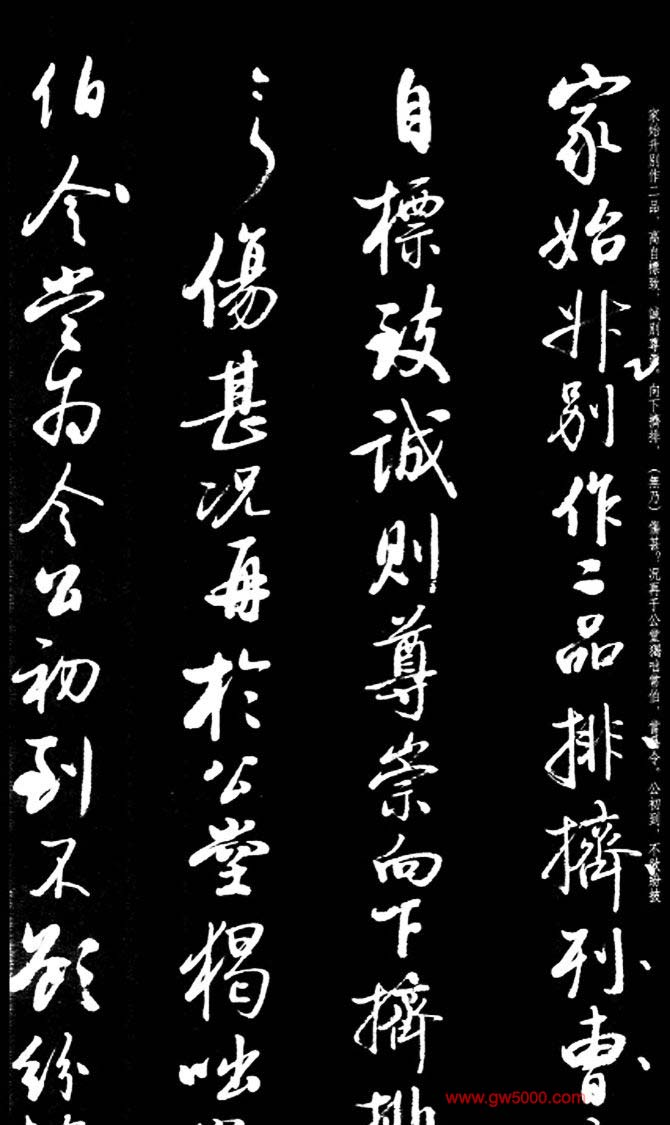 家始升別作二品排擠列曹
自標致誠則尊崇向下擠排
傷甚況再於公堂猲咄
伯令當為令公初到不欲紛
家始升别作二品，高自標致，誠則尊，向下擠排，（無乃）傷甚？況再于公堂猲咄常伯，當令。公初到，不欲紛披
www.gw5000.com